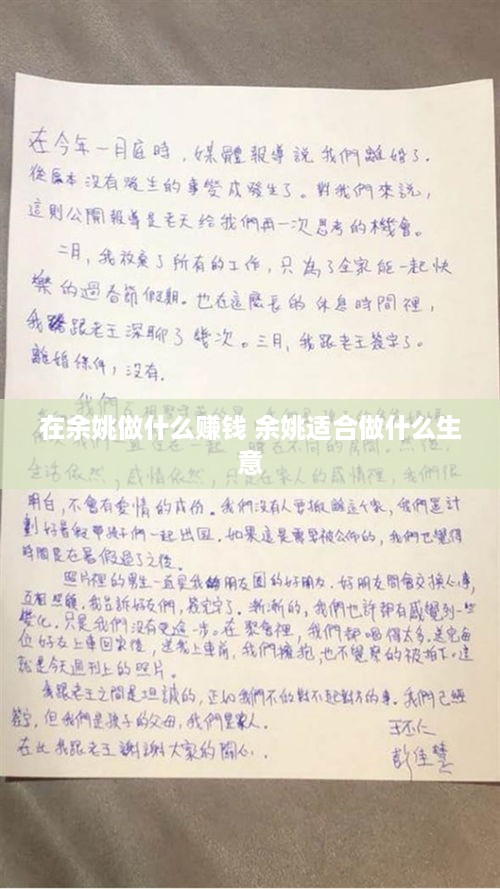 在今年一月底時，媒體報導說我們離婚了.
從原本沒有發生的事變成發生了。對我們來說，
這則公開報導是老天給我們再一次思考的機會。
二月，我放棄了所有的工作，只為了全家能一起快
樂的過春節假期。也在這麼長的休息時間裡，
我跟老王深聊了幾次。三月，我跟老王簽字了.
離婚條件，沒有.
在余姚做什么赚钱 余姚适合做什么生
意
生活依然，感情依然，只是在家人的感情裡，我們很
明白，不會有愛情的成份。我們沒有人要搬離這個家，我們還計
劃好暑假帶孩子們一起出國。如果這是需要被公佈的，我們也覺得
時間是在暑假過了之後。
照片裡的男生一直是我的朋友圈的好朋友. 好朋友間會交換心事，
互相照顧. 我告訴好友們，簽完字了. 漸漸的，我們也許都有感覺到一些
變化. 只是我們沒有更進一步。在聚會裡，我們都喝得太多. 送完每
位好友上車回家後，送我上車前，我們擁抱，也不覺察的被拍下. 這
就是今天週刊上的照片。
我跟老王之間是坦誠的，正如我們不做對不起對方的事. 我們已經
簽字，但我們是孩子的父母，我們是家人.
在此我跟老王謝謝大家的關心.
王丕仁
彭佳慧